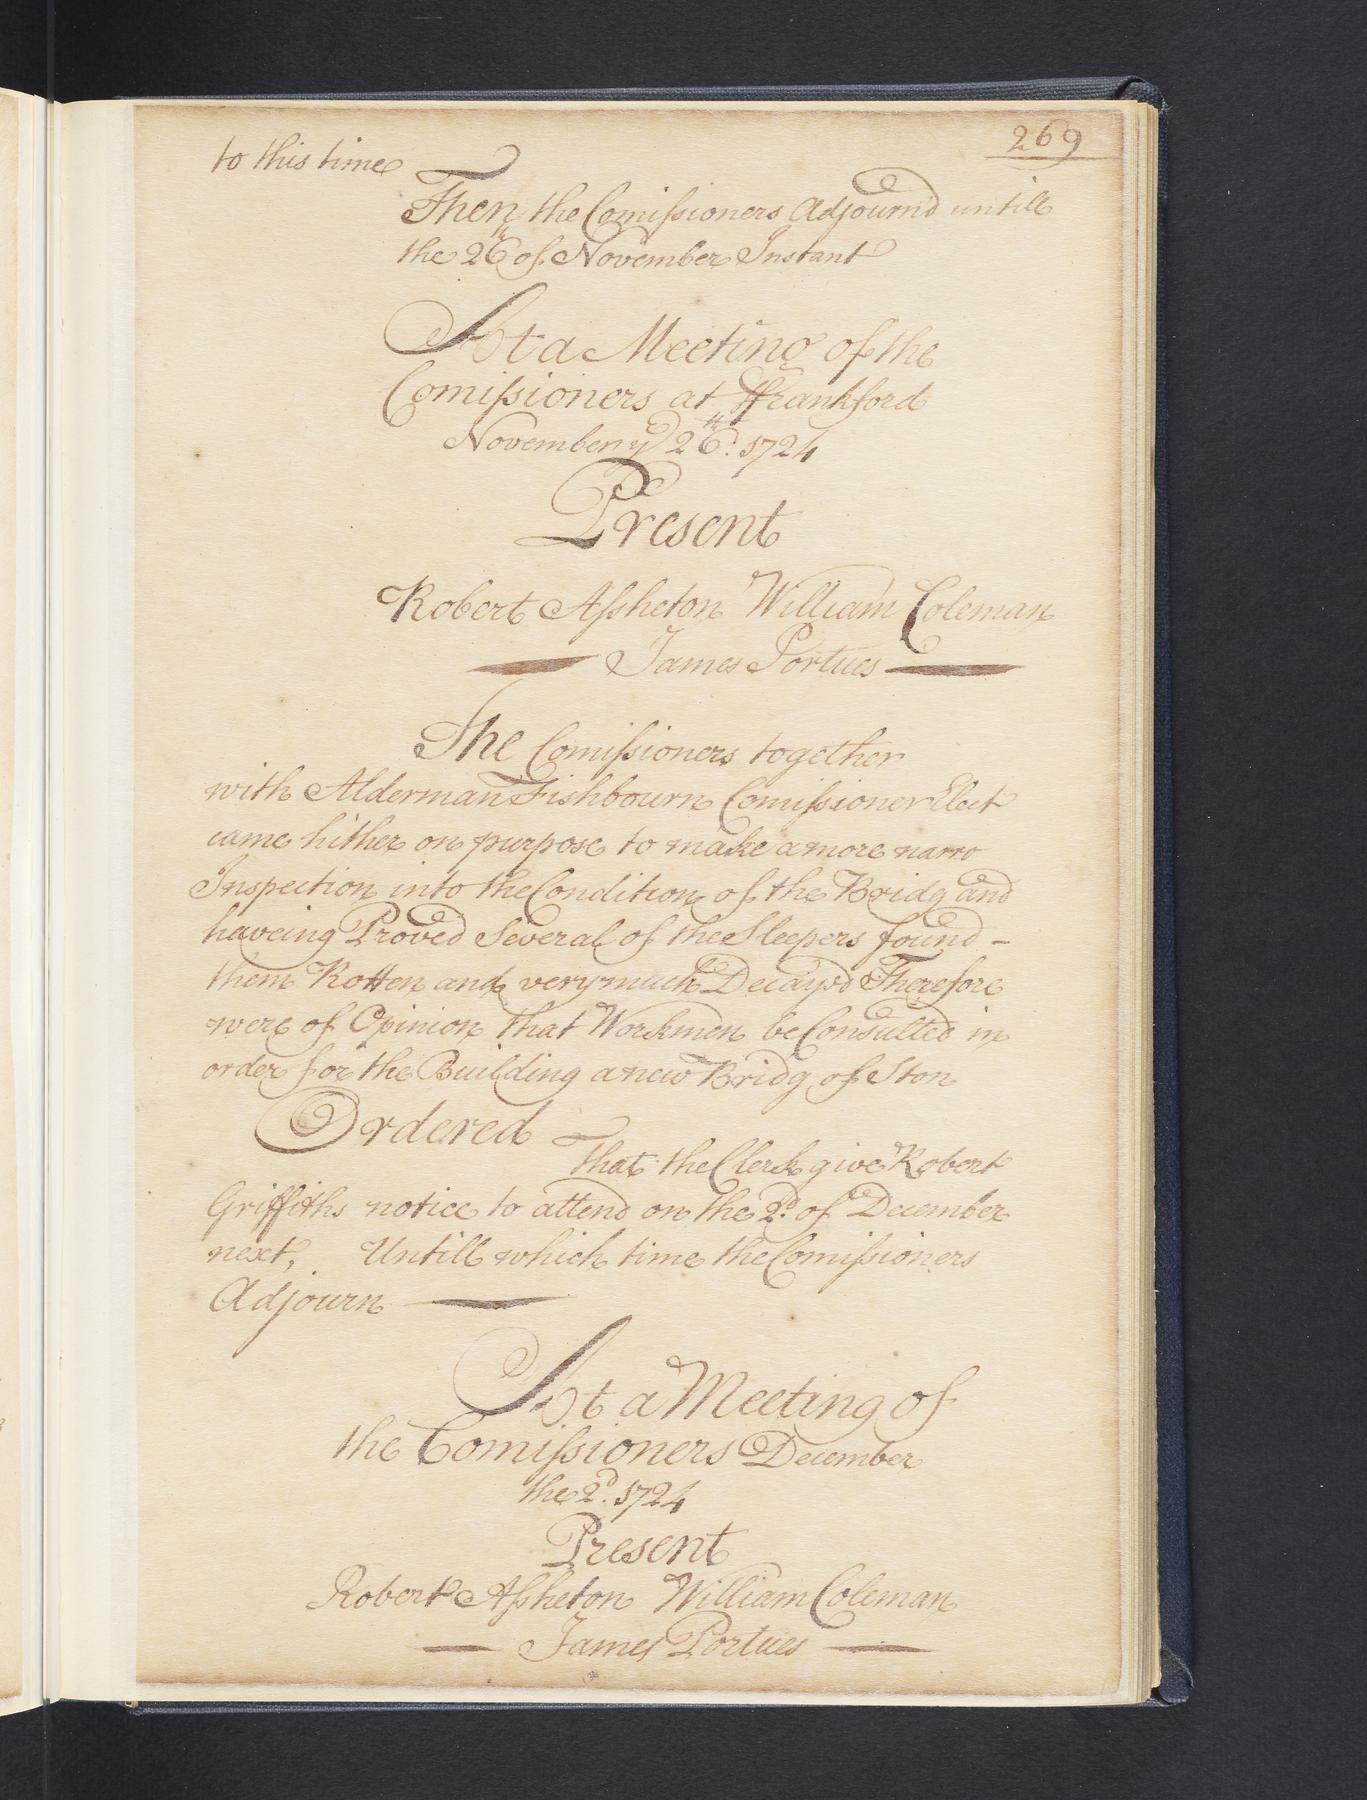 269
to this time
Then the Comissioners Adjourn'd untill
the 26th of November Instant
At a Meeting of the
Comissioners at ffrankford
November ye 26th: 1724
Present
Robert Assheton William Coleman
James Portues
The Comissioners together
with Alderman Fishbourn Comissioner Elect
came hither on purpose to make a more narro
Inspection into the Condition of the Bridg and
haveing Proved Several of the Sleepers found -
them Rotten and very much Decay'd Therefore
were of Opinion that Workmen be Consulted in
order for the Building a new Bridg of Ston
Ordered
That the Clerk give Robert
Griffiths notice to attend on the 2d. of December
next, Untill which time the Comissioners
Adjourn
At a Meeting of
the Comissioners December
the 2d. 1724
Present
Robert Assheton William Coleman
James Portues